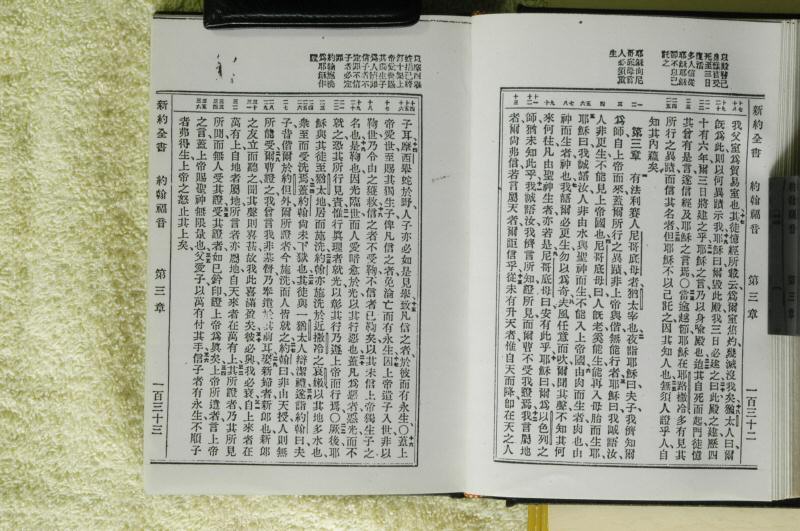 新約全書 約翰福音 第三章 一百三十二
我父室為貿易室也其徒憶經所載云為爾室焦灼幾滅沒我矣猶太人曰爾
旣為此則以何異蹟示我耶穌曰爾毀此殿我三日必建之曰此殿之建歷四
十有六年爾三日將建之乎耶穌之言乃以身喻殿也迨其自死而起門徒憶
其曾有是言遂信經及耶穌之言焉○當逾越節耶穌在耶路撒冷多有見其
所行之異蹟而信其名者但耶穌不以己託之因其知人也無須人證乎人自
知其內蘊矣
第三章 有法利賽人尼哥底母者猶太宰也夜詣耶穌曰夫子我儕知爾
為師自上帝而來蓋爾所行之異蹟非上帝與偕無能行者耶穌曰我誠語汝
人非更生不能見上帝國也尼哥底母曰人旣老奚能生能再入母胎而生耶
耶穌曰我誠語汝人非由水與聖神而生不能入上帝國由肉而生者肉也由
神而生者神也我語爾必更生勿以為奇夫風任意而吹爾聞其聲不知其何
來何往凡由聖神生者亦若是尼哥底母曰安有此乎耶穌曰爾為以色列之
師猶未知此乎我誠語汝我儕言所知證所見而爾曹不受我證焉我言屬地
者爾尚弗信若言屬天者爾詎信乎從未有升天者惟自天而降卽在天之人
耶穌向尼
哥底母言
人必須重
生
子耳摩西舉蛇於野人子亦必如是見舉致凡信之者於彼而有永生○蓋上
帝愛世至賜其獨生子俾凡信之者免淪亡而有永生因上帝遣子入世非以
鞫世乃令由之獲救信之者不受鞫不信者已鞫矣以其未信上帝獨生子之
名也是鞫也因光臨世而人愛暗愈於光以其行惡也蓋凡為惡者惡光而不
就之恐其所行見責惟行眞理者就光以彰其行乃遜上帝而行焉○厥後耶
穌與其徒至猶太地居而施洗約翰亦施洗於近撒冷之哀嫩以其地多水也
衆至而受洗焉蓋約翰尚未下獄也其徒與一猶太人辯潔禮遂詣約翰曰夫
子昔偕爾於約但外爾所證者今施洗而人皆就之約翰曰非由天授人則無
所能受爾曹證之我曾言我非基督乃奉遣於其前耳娶新婦者新郎也新郎
之友立而聽之聞其聲則喜甚故我此喜滿盈矣彼必興我必衰自上來者在
萬有上自地者屬地所言者亦屬地自天來者在萬有上其所證者乃其所見
所聞而無人受其證受其證者如已鈐印證上帝為眞矣上帝所遣者言上帝
之言蓋上帝賜聖神無限量也父愛子以萬有付其手信子者有永生不順子
者弗得生上帝之怒止其上矣
新約全書 約翰福音 第三章 一百三十三